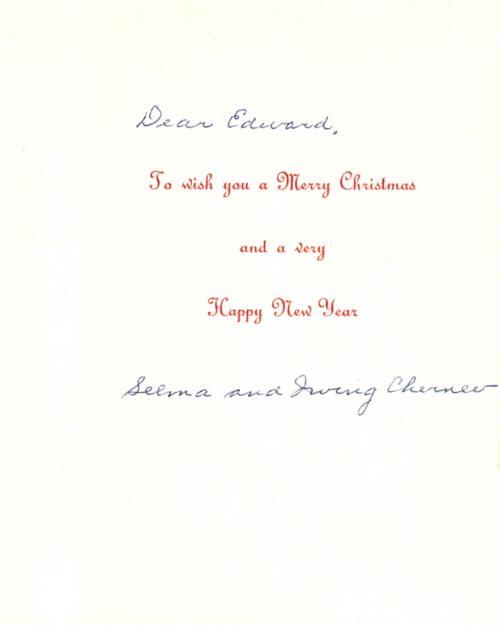 Dear Edward,
To wish you a Merry Christmas
and a very
Happy New Year
Selma and Irving Chernev